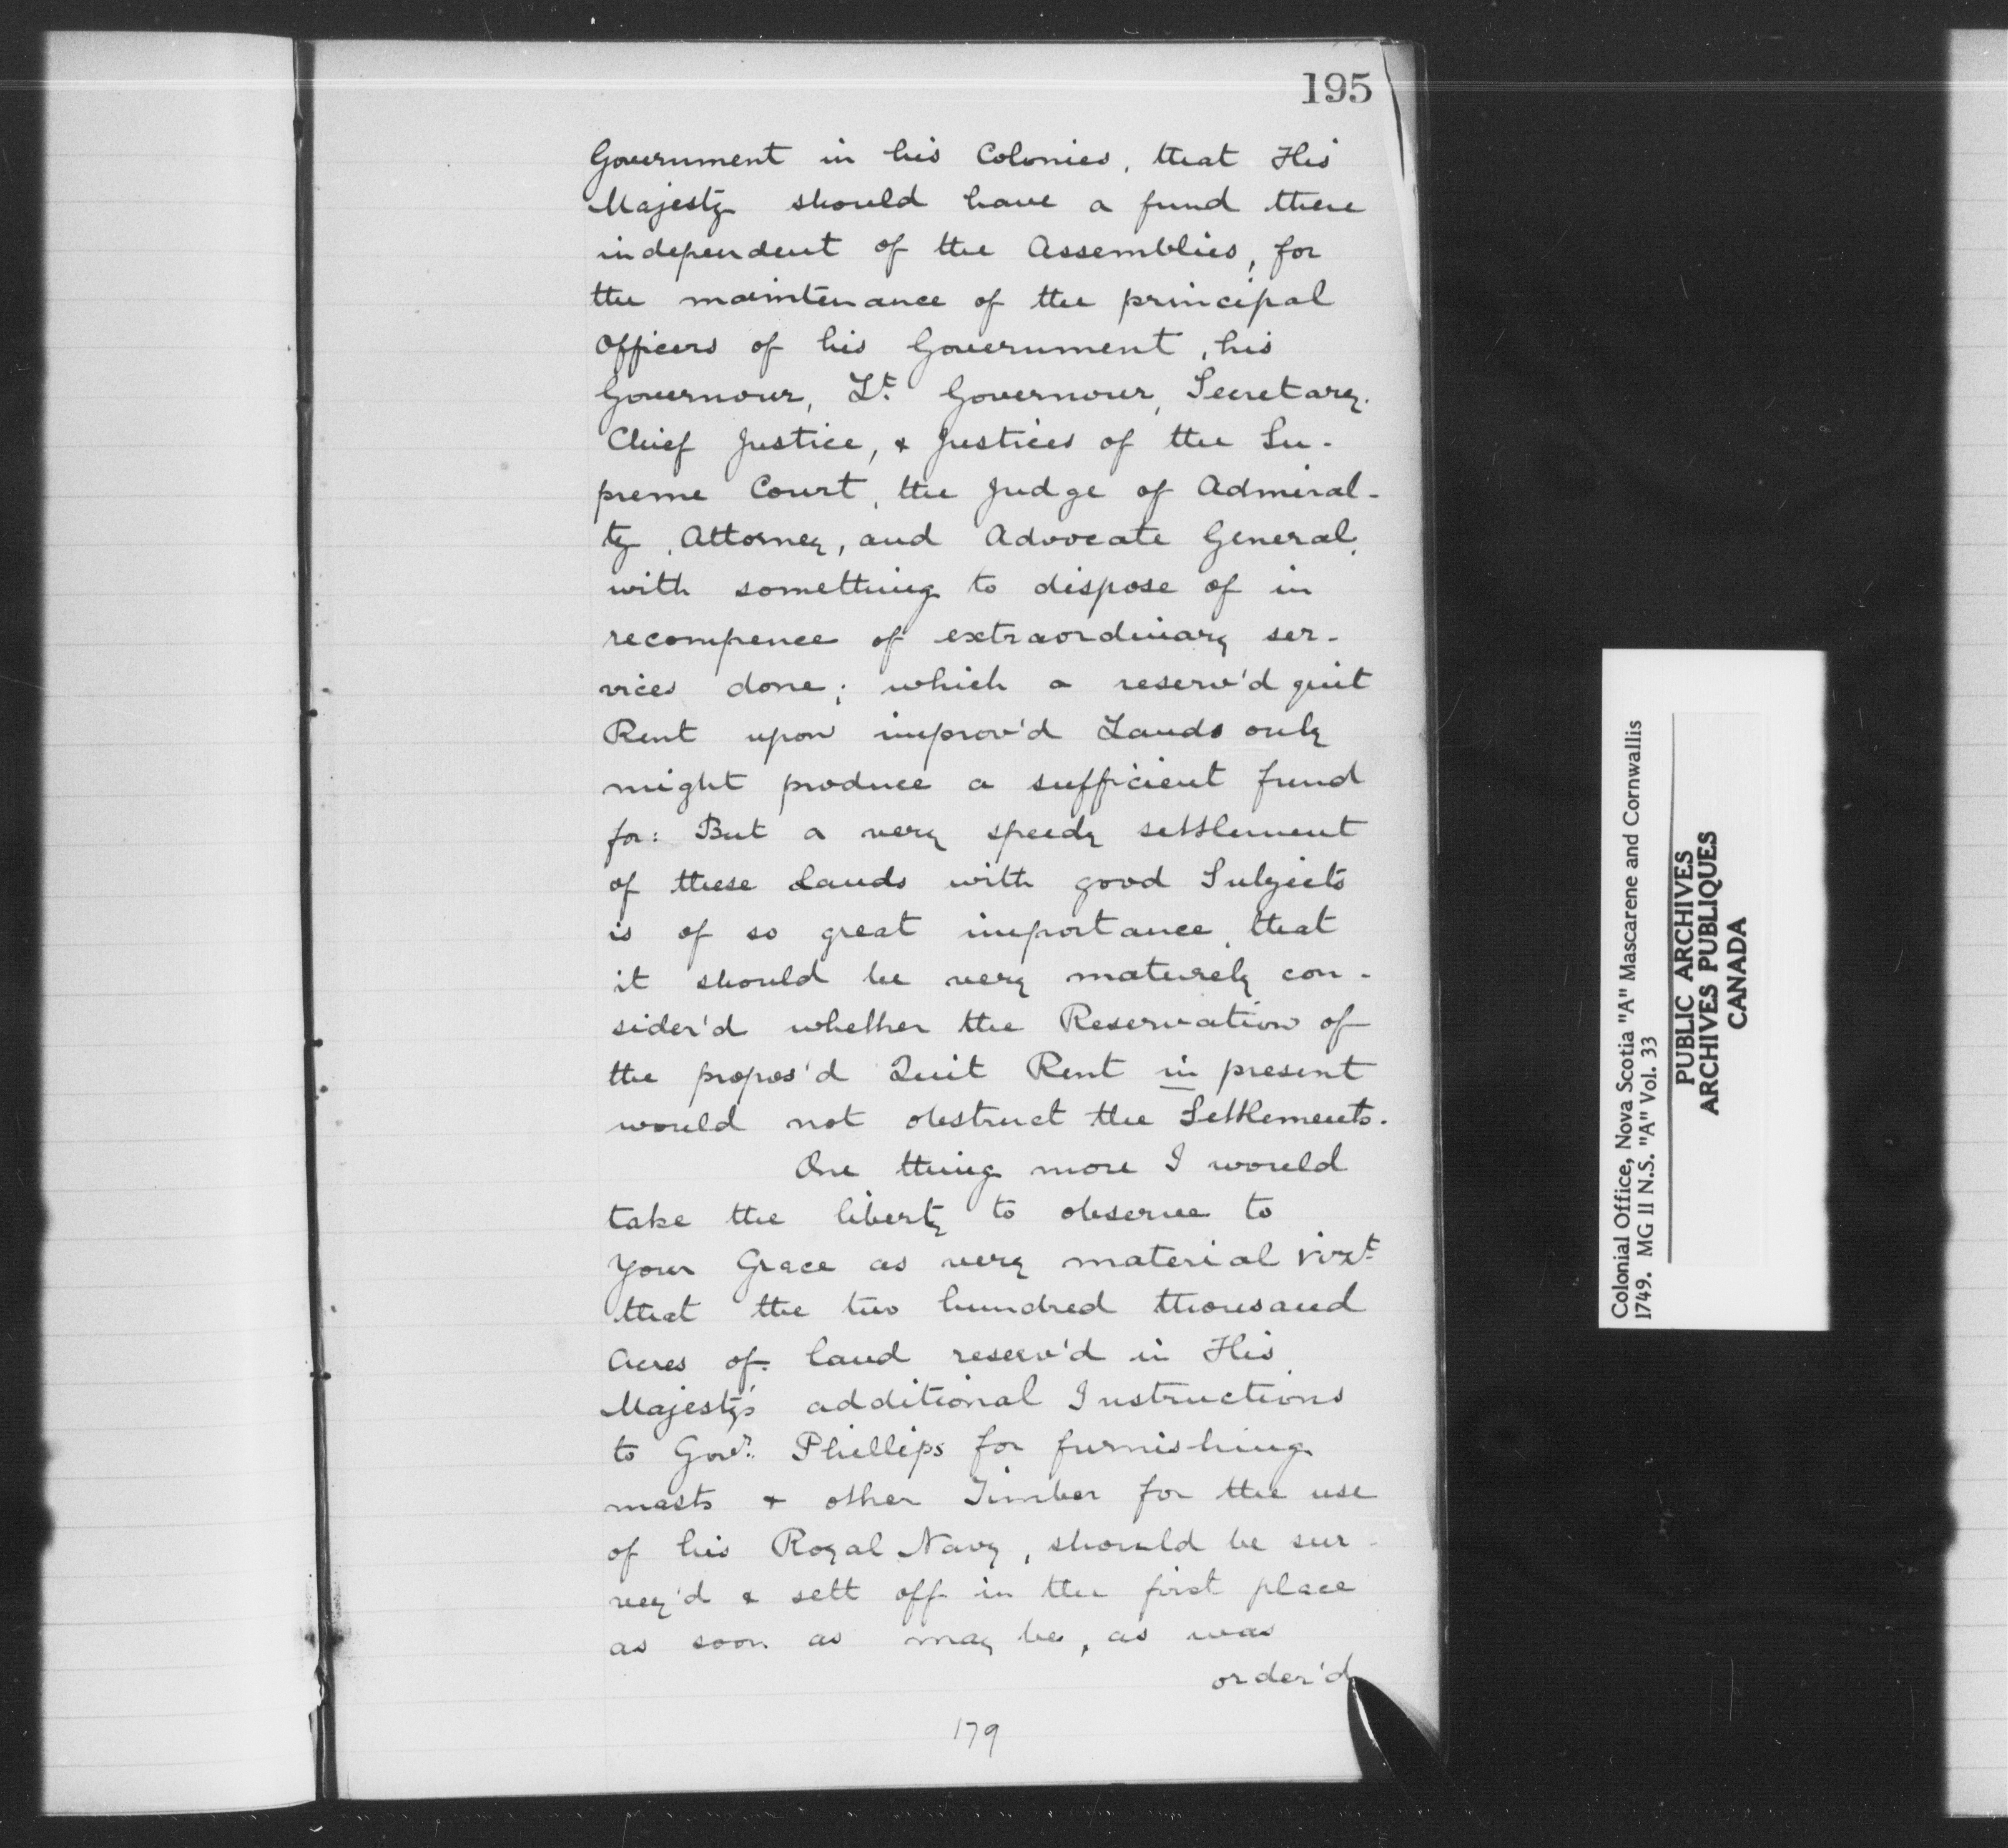 195
Government in his Colonies, that His
Majesty should have a fund there
independent of the Assemblies, for
the maintenance of the principal
Officers of his Government, his
Governour, Lt. Governour, Secretary.
Chief Justice, & Justices of the Su-
preme Court, the Judge of Admiral-
ty, Attorney, and Advocate General,
with something to dispose of in
recompence of extraordinary ser-
vices done; which a reserv'd quit
Rent upon improv'd Lands only
might produce a sufficient fund
for: But a very speedy settlement
of these Lands with good Subjects
is of so great importance, that
it should be very maturely con-
sider'd whether the Reservation of
the propos'd Quit Rent in present
would not obstruct the Settlements.
One thing more I would
take the liberty to observe to
Your Grace as very material vizt
that the two hundred thousand
Acres of land reserv'd in His
Majesty's additional Instructions
to Govr. Phillips for furnishing
masts & other Timber for the use
of his Royal Navy, should be sur-
vey'd & sett off in the first place
as soon as may be, as was
order'd
179
Colonial Office, Nova Scotia "A" Mascarene and Cornwallis
1749. MG II N.S. "A" Vol. 33
PUBLIC ARCHIVES
ARCHIVES PUBLIQUES
CANADA